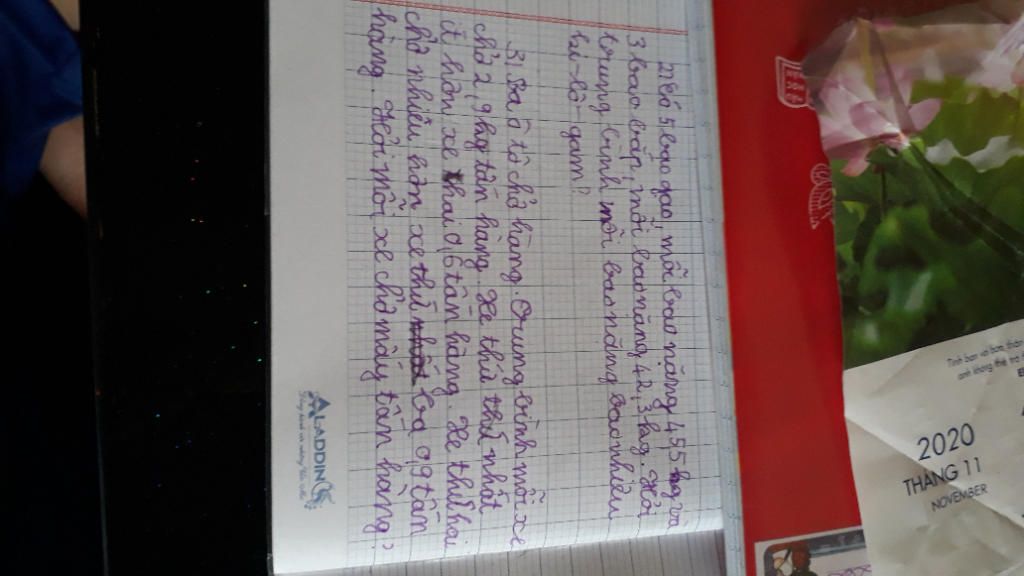 2) Có 5 bao gạo, mỗi bao nặng 45,5 kg và
3 bao bắp, mỗi bao nặng 42,3 kg. Hỏi
trung bình mỗi bao nặng bao nhiêu
ki-lô-gam?
3) Ba ô tô chở hàng. Trung bình mỗi xe
chở 2,9 tấn hàng. Xe thứ nhất
ít hơn xe hai 0,6 tấn hàng. Xe thứ hai
chở nhiều hơn xe thứ ba 0,9 tấn
hàng. Hỏi mỗi xe chở mấy tấn hàng?
ALADDIN
Tình bạn
anh không thể
2020
THÁNG 11
NOVEMBER